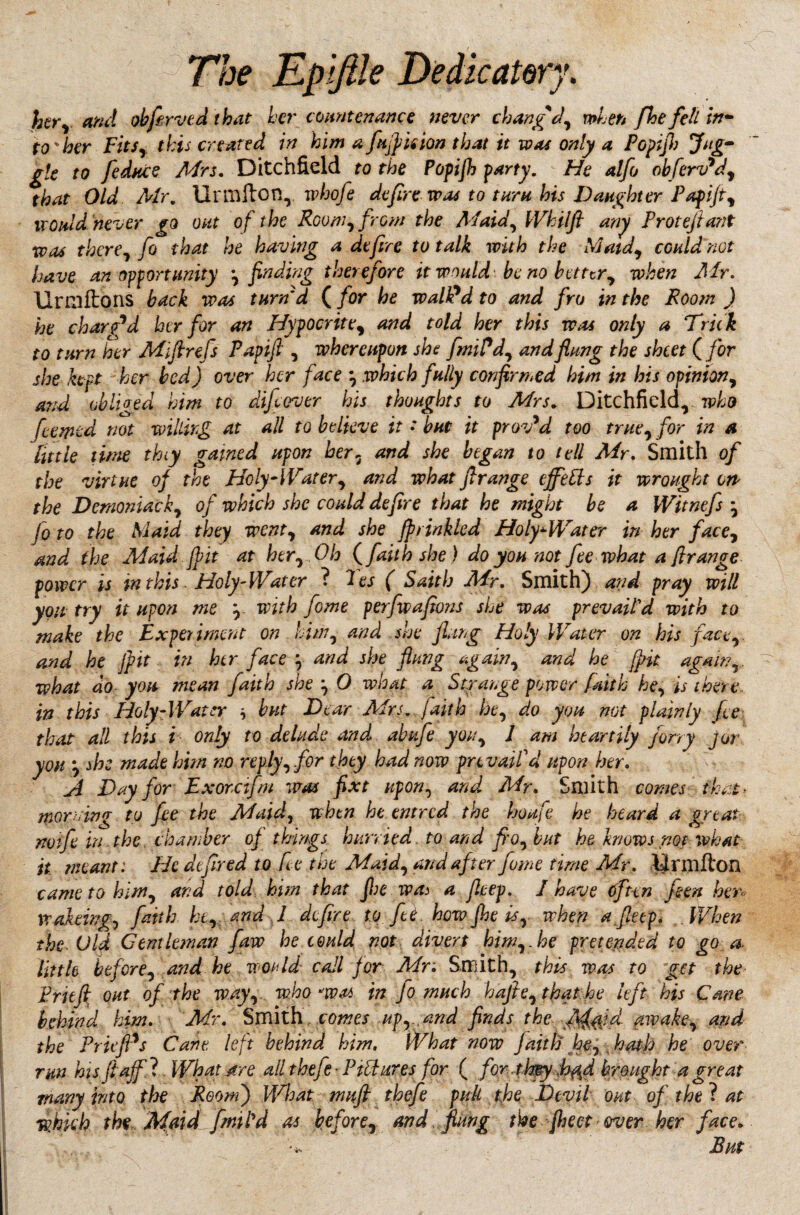 The Epistle Dedicatory.
her, and obſerved that her countenance never chang'd, when ſhe fell in-
to her Fits, this created in him a ſuſpicion that it was only a Popiſh Jug-
gle to ſeduce Mrs. Ditchfield to the Popiſh party. He alſo obſerv'd,
that Old Mr. Urmſton, whoſe deſire was to turn his Daughter Papiſt,
would never go out of the Room, from the Maid, Whilſt any Proteſtant
was there, ſo that he having a deſire to talk with the Maid, could not
have an opportunity ; finding therefore it would be no better, when Mr.
Urmſtons back was turn'd ( for he walk'd to and fro in the Room )
he charg'd her for an Hypocrite, and told her this was only a Trick
to turn her Miſtreſs Papiſt , whereupon she ſmil'd, and flung the sheet ( for
she kept her bed) over her face ; which fully confirmed him in his opinion,
and obliged him to diſcover his thoughts to Mrs. Ditchfield, who
ſeemed not willing at all to believe it : but it prov'd too true, for in a
little time they gained upon her, and she began to tell Mr. Smith of
the virtue of the Holy-Water, and what ſtrange effects it wrought on
the Demoniack, of which she could deſire that he might be a Witneſs ;
ſo to the Maid they went, and she ſprinkled Holy-Water in her face,
and the Maid ſpit at her, Oh ( ſaith she ) do you not ſee what a ſtrange
power is in this Holy-Water ? Yes ( Saith Mr. Smith) and pray will
you try it upon me ; with ſome perſwaſions she was prevail'd with to
make the Experiment on him, and she flung Holy Water on his face,
and he ſpit in her face ; and she flung again, and he ſpit again,
what do you mean ſaith she ; O what a Strange power ſaith he, is there
in this Holy-Water ; but Dear Mrs. ſaith he, do you not plainly ſee
that all this is only to delude and abuſe you, I am heartily ſorry for
you ; she made him no reply, for they had now prevail'd upon her.
A Day for Exorciſm was fixt upon, and Mr. Smith comes that
morning to ſee the Maid, when he entred the houſe he heard a great
noiſe in the chamber of things hurried to and fro, but he knows not what
it meant: He deſired to ſee the Maid, and after ſome time Mr. Urmſton
came to him, and told him that ſhe was a ſleep. I have often ſeen her
wakeing, ſaith he, and I deſire to ſee how ſhe is, when a ſleep. When
the Old Gentleman ſaw he could not divert him, he pretended to go a
little before, and he would call for Mr. Smith, this was to get the
Prieſt out of the way, who was in ſo much haſte, that he left his Cane
behind him. Mr. Smith comes up, and finds the Maid awake, and
the Prieſt's Cane left behind him. What now ſaith he, hath he over
run his ſtaff ? What are all theſe Pictures for ( for they had brought a great
many into the Room) What muſt theſe pull the Devil out of the ? at
which the Maid ſmil'd as before, and flung the ſheet over her face.
But